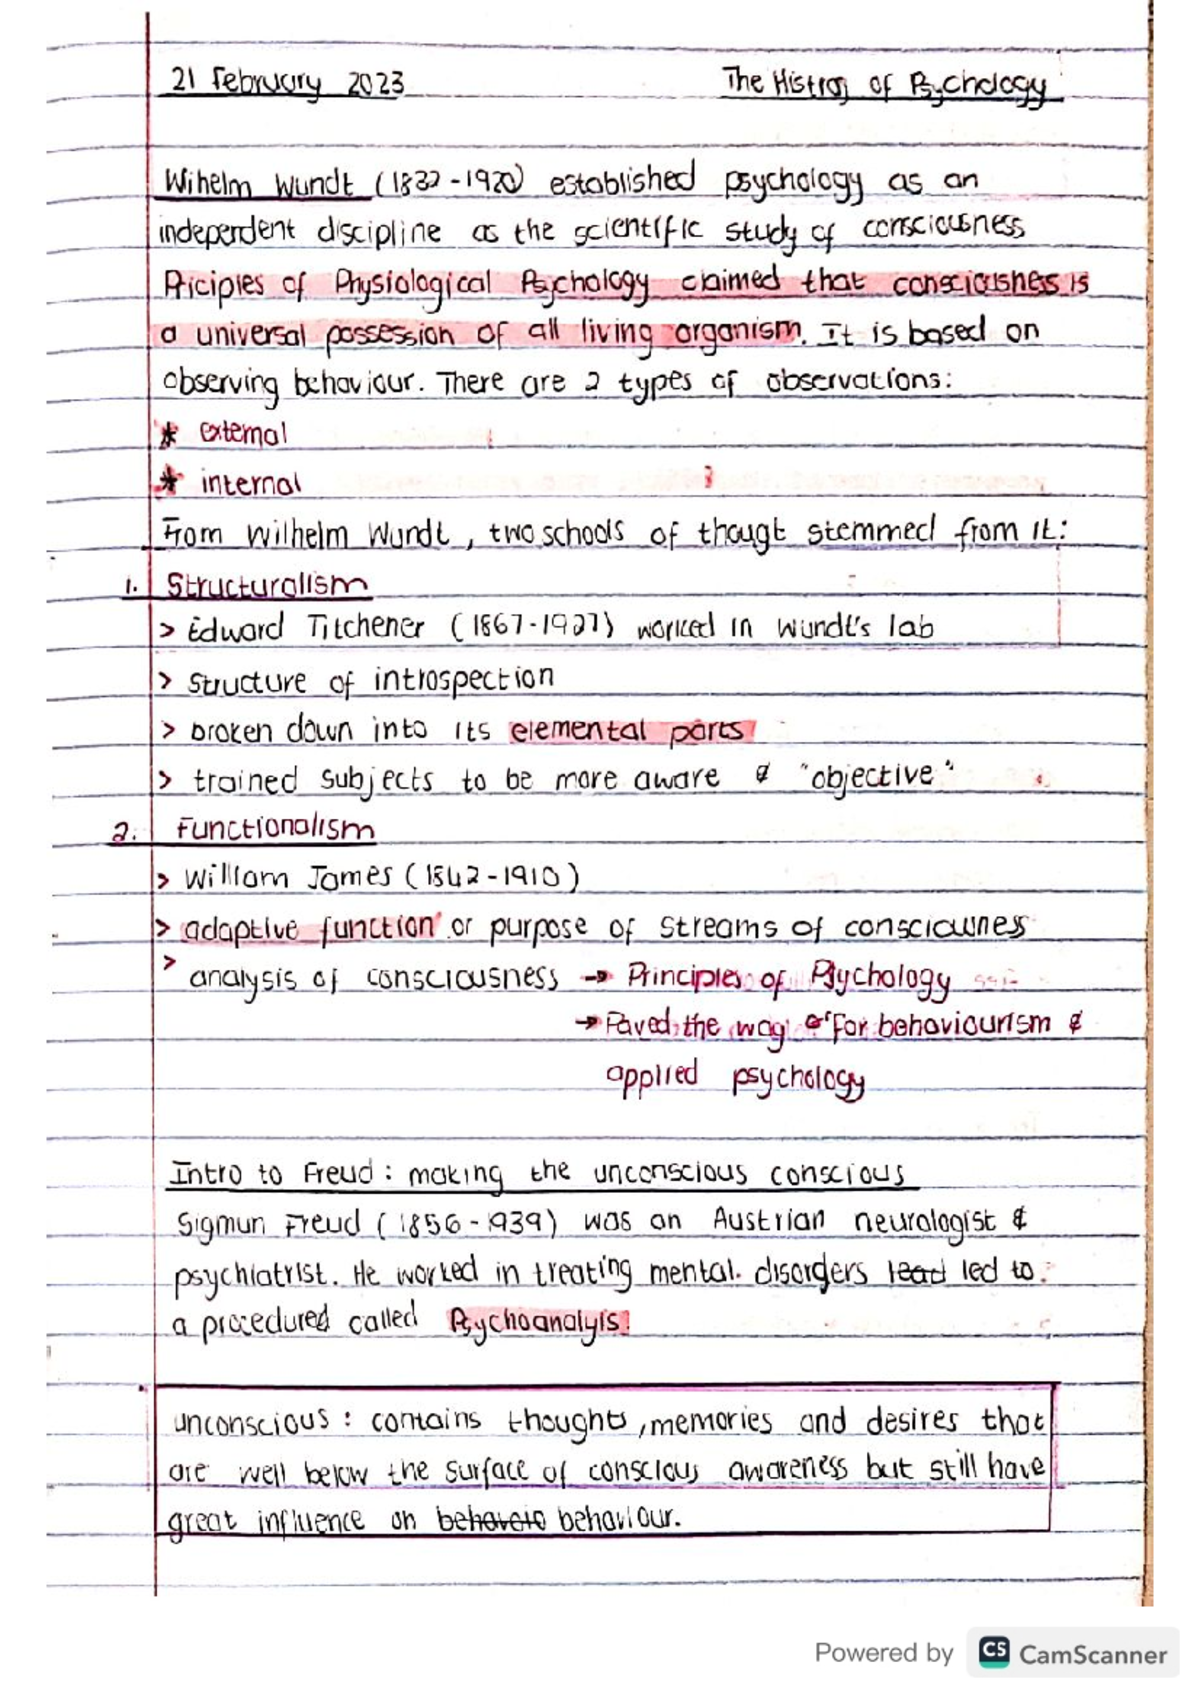 21 February 2023 The Histroy of Psychology
Wihelm Wundt (1832-1920) established psychology as an
independent discipline as the scientific study of consciousness
Priciples of Physiological Psychology claimed that consciousness is
a universal possession of all living organism. It is based on
observing behaviour. There are 2 types of observations:
* external
* internal
From Wilhelm Wundt, two schools of thougt stemmed from it:
1. Structuralism
> Edward Titchener (1867-1927) worked in Wundt's lab
> structure of introspection
> broken down into its elemental parts
> trained subjects to be more aware & "objective"
2. Functionalism
> William James (1842-1910)
> adaptive function or purpose of streams of consciousness
> analysis of consciousness → Principles of Psychology
→ Paved the way for behaviourism &
applied psychology
Intro to Freud: making the unconscious conscious
Sigmun Freud (1856-1939) was an Austrian neurologist &
psychiatrist. He worked in treating mental disorders lead led to
a procedured called Psychoanalyis!
unconscious: contains thoughts, memories and desires that
are well below the surface of conscious awareness but still have
great influence on behaveio behaviour.
Powered by CS CamScanner